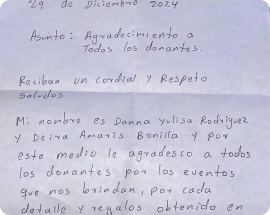 29 de Diciembre 2024
Asunto: Agradecimiento a
Todos los donantes.
Reciban un cordial y Respeto
Saludos
Mi nombre es Danna Yulisa Rodriguez
y Deira Amaris Bonilla y por
este medio le agradesco a todos
los donantes por los eventos
que nos brindan, por cada
detalle y regalos obtenido en